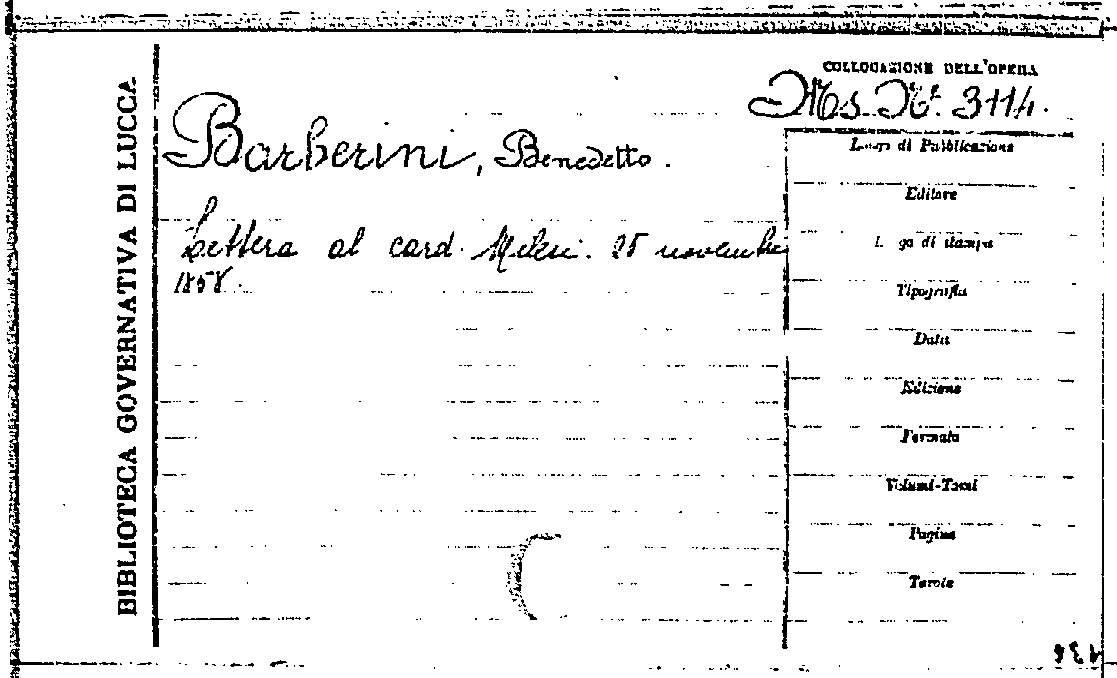 BIBLIOTECA GOVERNATIVA DI LUCCA
COLLOCAZIONE DELL'OPERA
Ms. N.º 3114.
Barberini, Benedetto.
Lettera al card. Milesi. 25 novembre
1858.
Luogo di Pubblicazione
Editore
Luogo di stampa
Tipografia
Data
Edizione
Formato
Volumi-Tomi
Pagine
Tavole